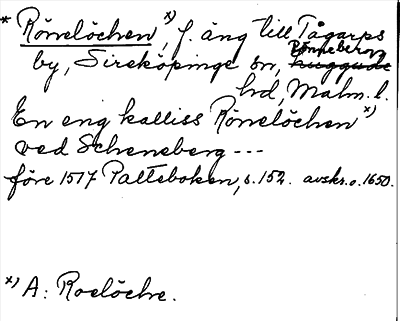 * Rönelöchen x), f. äng till Tågarps
by, Sireköpinge sn, Rönneberg
hd, Malm. l.
En eng kalliss Rönelöchen x)
ved Scheneberg ---
före 1517 Palteboken, s. 152. avskr. o. 1650.
x) A: Roelöchre.